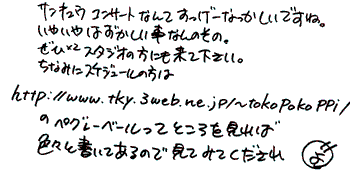 サンキュウ コンサートなんてすっげーなつかしいですね。
いやいやはずかしい事なんのその。
ぜひ××スタジオの方にも来て下さい。
ちなみにスケジュールの方は
http://www.tky.3web.ne.jp/~tokopokoppi/
のペグレーベールってところを見れば
色々と書いてあるので見てみてくだされ